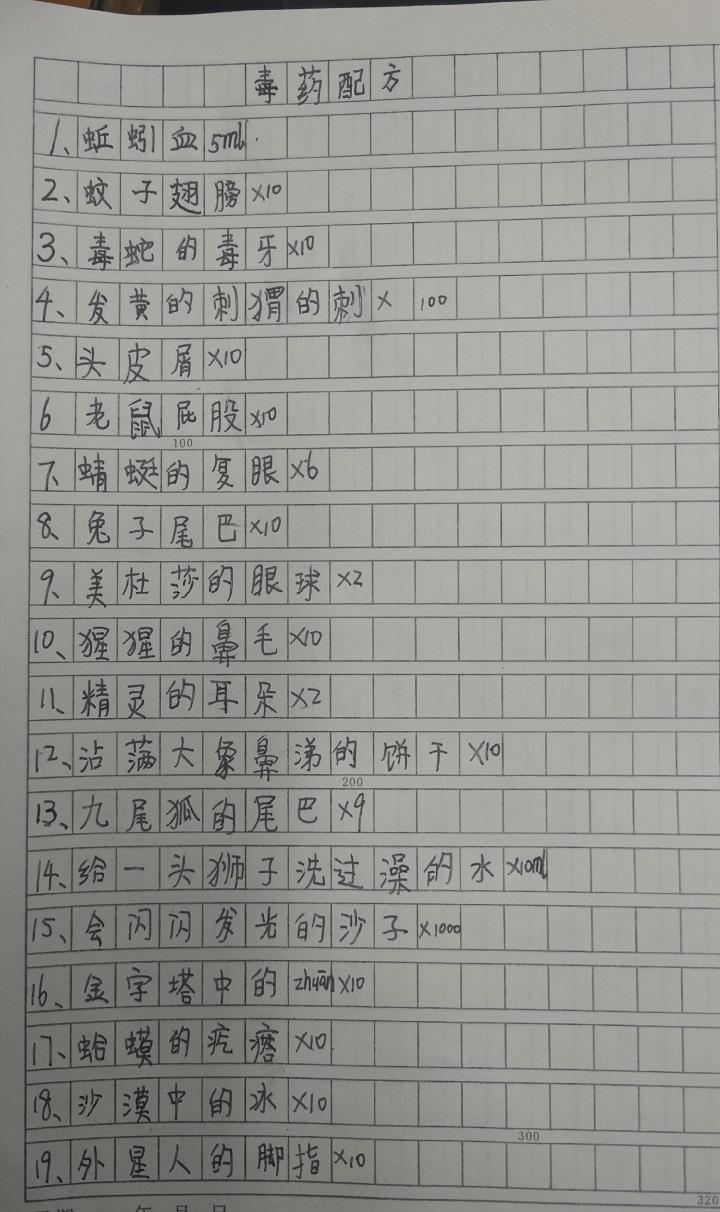 毒药配方
1、蚯蚓血5ml.
2、蚊子翅膀×10
3、毒蛇的毒牙×10
4、发黄的刺猬的刺×100
5、头皮屑×10
6 老鼠屁股×10
100
7、蜻蜓的复眼×6
8、兔子尾巴×10
9、美杜莎的眼球×2
10、猩猩的鼻毛×10
11、精灵的耳朵×2
12、沾满大象鼻涕的饼干×10
200
13、九尾狐的尾巴×9
14、给一头狮子洗过澡的水×10ml
15、会闪闪发光的沙子×1000
16、金字塔中的zhuān×10
17、蛤蟆的疙瘩×10
18、沙漠中的冰×10
300
19、外星人的脚指×10
320
年 月 日